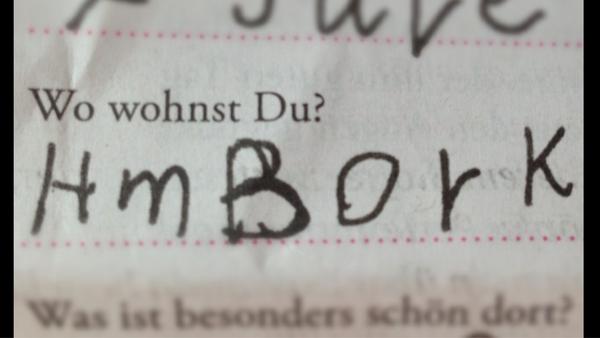 Jahre
Wo wohnst Du?
HmBOrK
Was ist besonders schön dort?